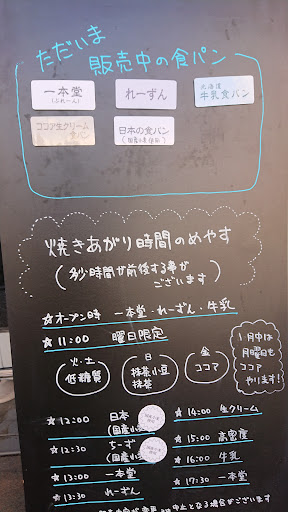 ただいま
販売中の食パン
一本堂
(ぷれーん)
れーずん
北海道
牛乳食パン
ココア生クリーム
日本の食パン
(国産小麦使用)
焼きあがり時間のめやす
(多少時間が前後する事が
ございます)
☆オープン時 一本堂・れーずん・牛乳
☆11:00 曜日限定
火・土
低糖質
日
抹茶小豆
抹茶
金
ココア
1月中は
月曜日も
ココア
やります!
☆12:00 日本
(国産小
☆12:30 ちーず
(国産小
☆13:00 一本堂
☆13:30 れーずん
☆14:00 生クリーム
☆15:00 高密度
☆16:00 牛乳
☆17:30 一本堂
中止となる場合がございます